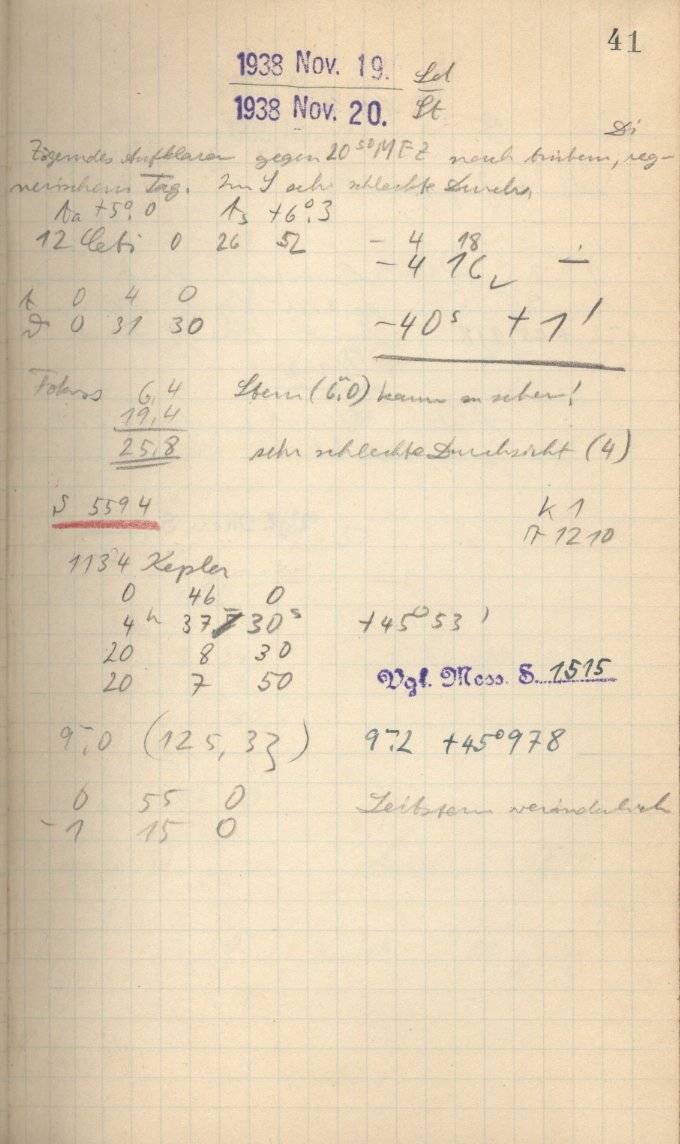 41
1938 Nov. 19. Sd
1938 Nov. 20. St
Di
Zögerndes Aufklaren gegen 20 30 MEZ nach trübem, reg-
nerischem Tag. Im S sehr schlechte Durchs.
ta +5°,0 ts +6°,3
12 Ceti 0 26 52 - 4 18
- 4 16 -
t 0 4 0
0 31 30 -40s + 1'
Fokus 6,4 Stern (6,0) kaum zu sehen!
19,4
25,8 sehr schlechte Durchsicht (4)
S 5594 K 1
1210
1134 Kepler
0 46 0
4h 37 30s +45°53'
20 8 30
20 7 50 Vgl. Mess. S. 1515
9,0 (125, 33) 9,2 +45°978
0 55 0 Leitstern veränderlich
-1 15 0